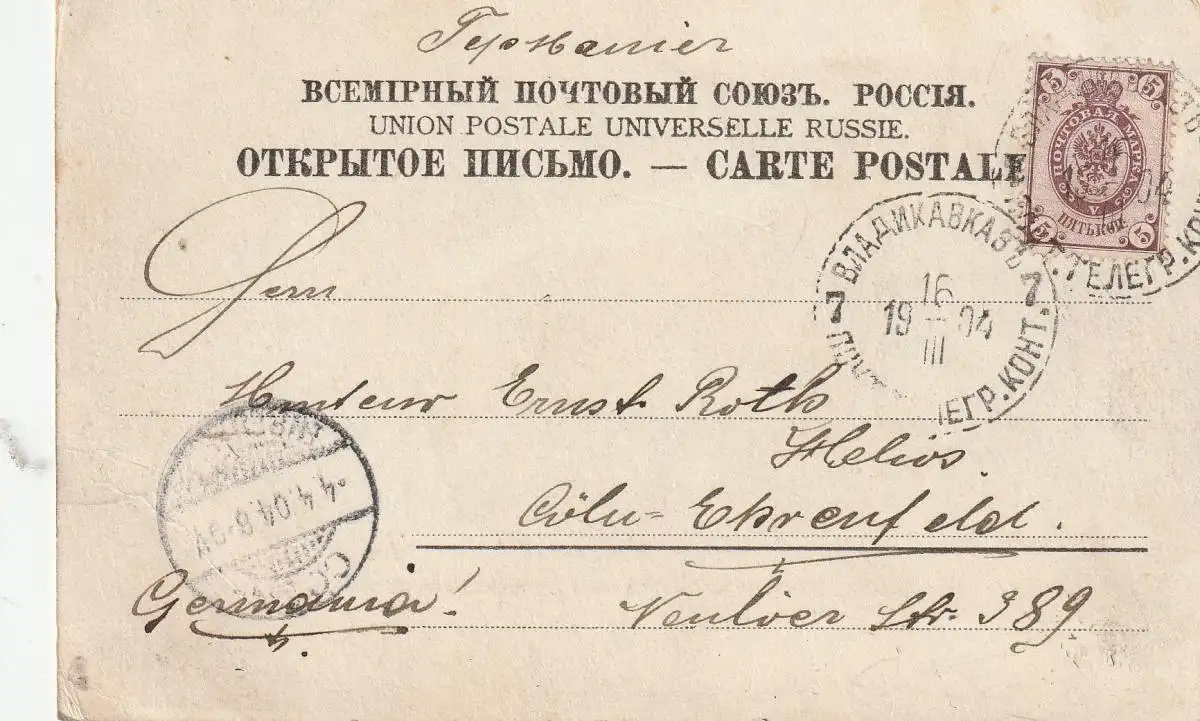 Германiя
ВСЕМІРНЫЙ ПОЧТОВЫЙ СОЮЗЪ. РОССІЯ.
UNION POSTALE UNIVERSELLE RUSSIE.
ОТКРЫТОЕ ПИСЬМО. — CARTE POSTALE
5 5
ПОЧТОВАЯ МАРКА
V
ПЯТЬ КОП.
5 5
04
Т. ТЕЛЕГР. КОН
7 ВЛАДИКАВКАЗЪ 7
16
19 04
III
ЕГР. КОНТ.
Herrn
Monteur Ernst Roth
Helios.
Cöln-Ehrenfeld.
4.4.04.
Germania!
Venloer Str. 389